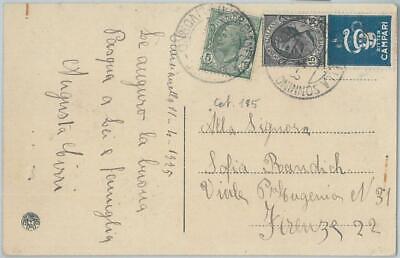 11-4-1925
Le auguro la buona
Pasqua a Lei e famiglia
Augusta
Cat. 185
Alla Signora
Sofia Bandich
Viale Pr. Eugenio N 31
Firenze 22
5
15
BITTER
CAMPARI
SONNINO